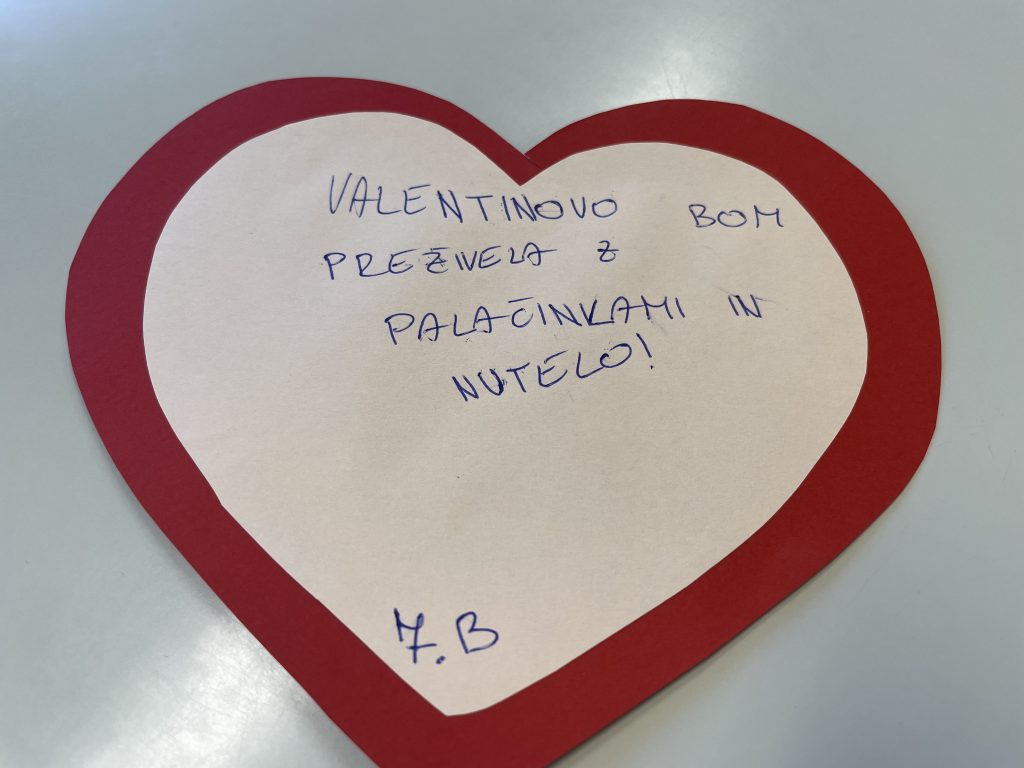 VALENTINOVO BOM
PREŽIVELA Z
PALAČINKAMI IN
NUTELO!
7.B